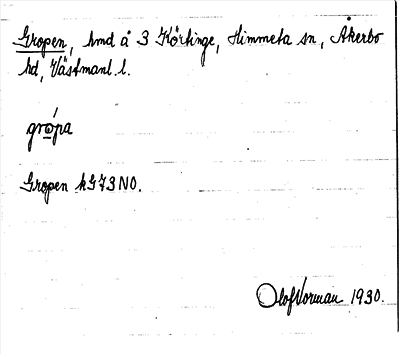 Gropen, hmd å 3 Körtinge, Himmeta sn, Åkerbo
hd, Västmanl. l.
grǫ́pa
Gropen kG73NO.
Olof Norman 1930.